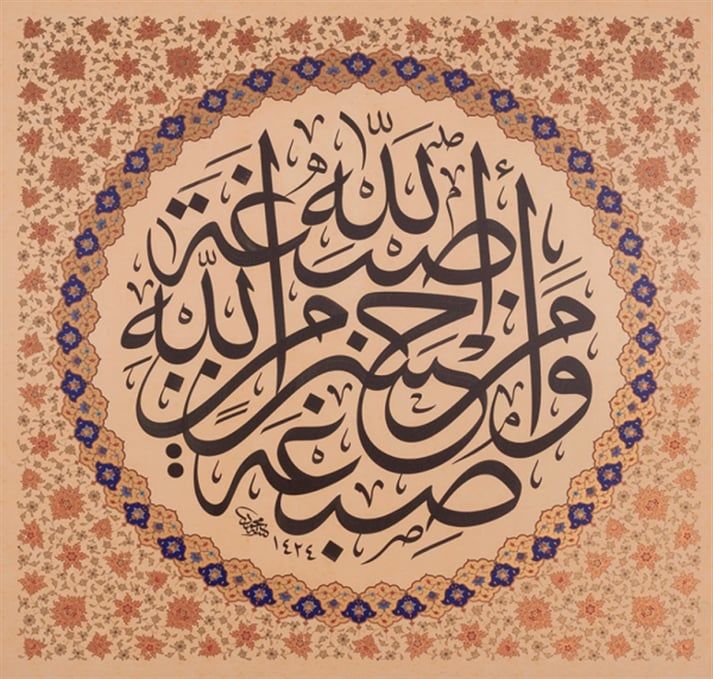 صبغة الله
ومن أحسن من الله
صبغة
١٤٢٤